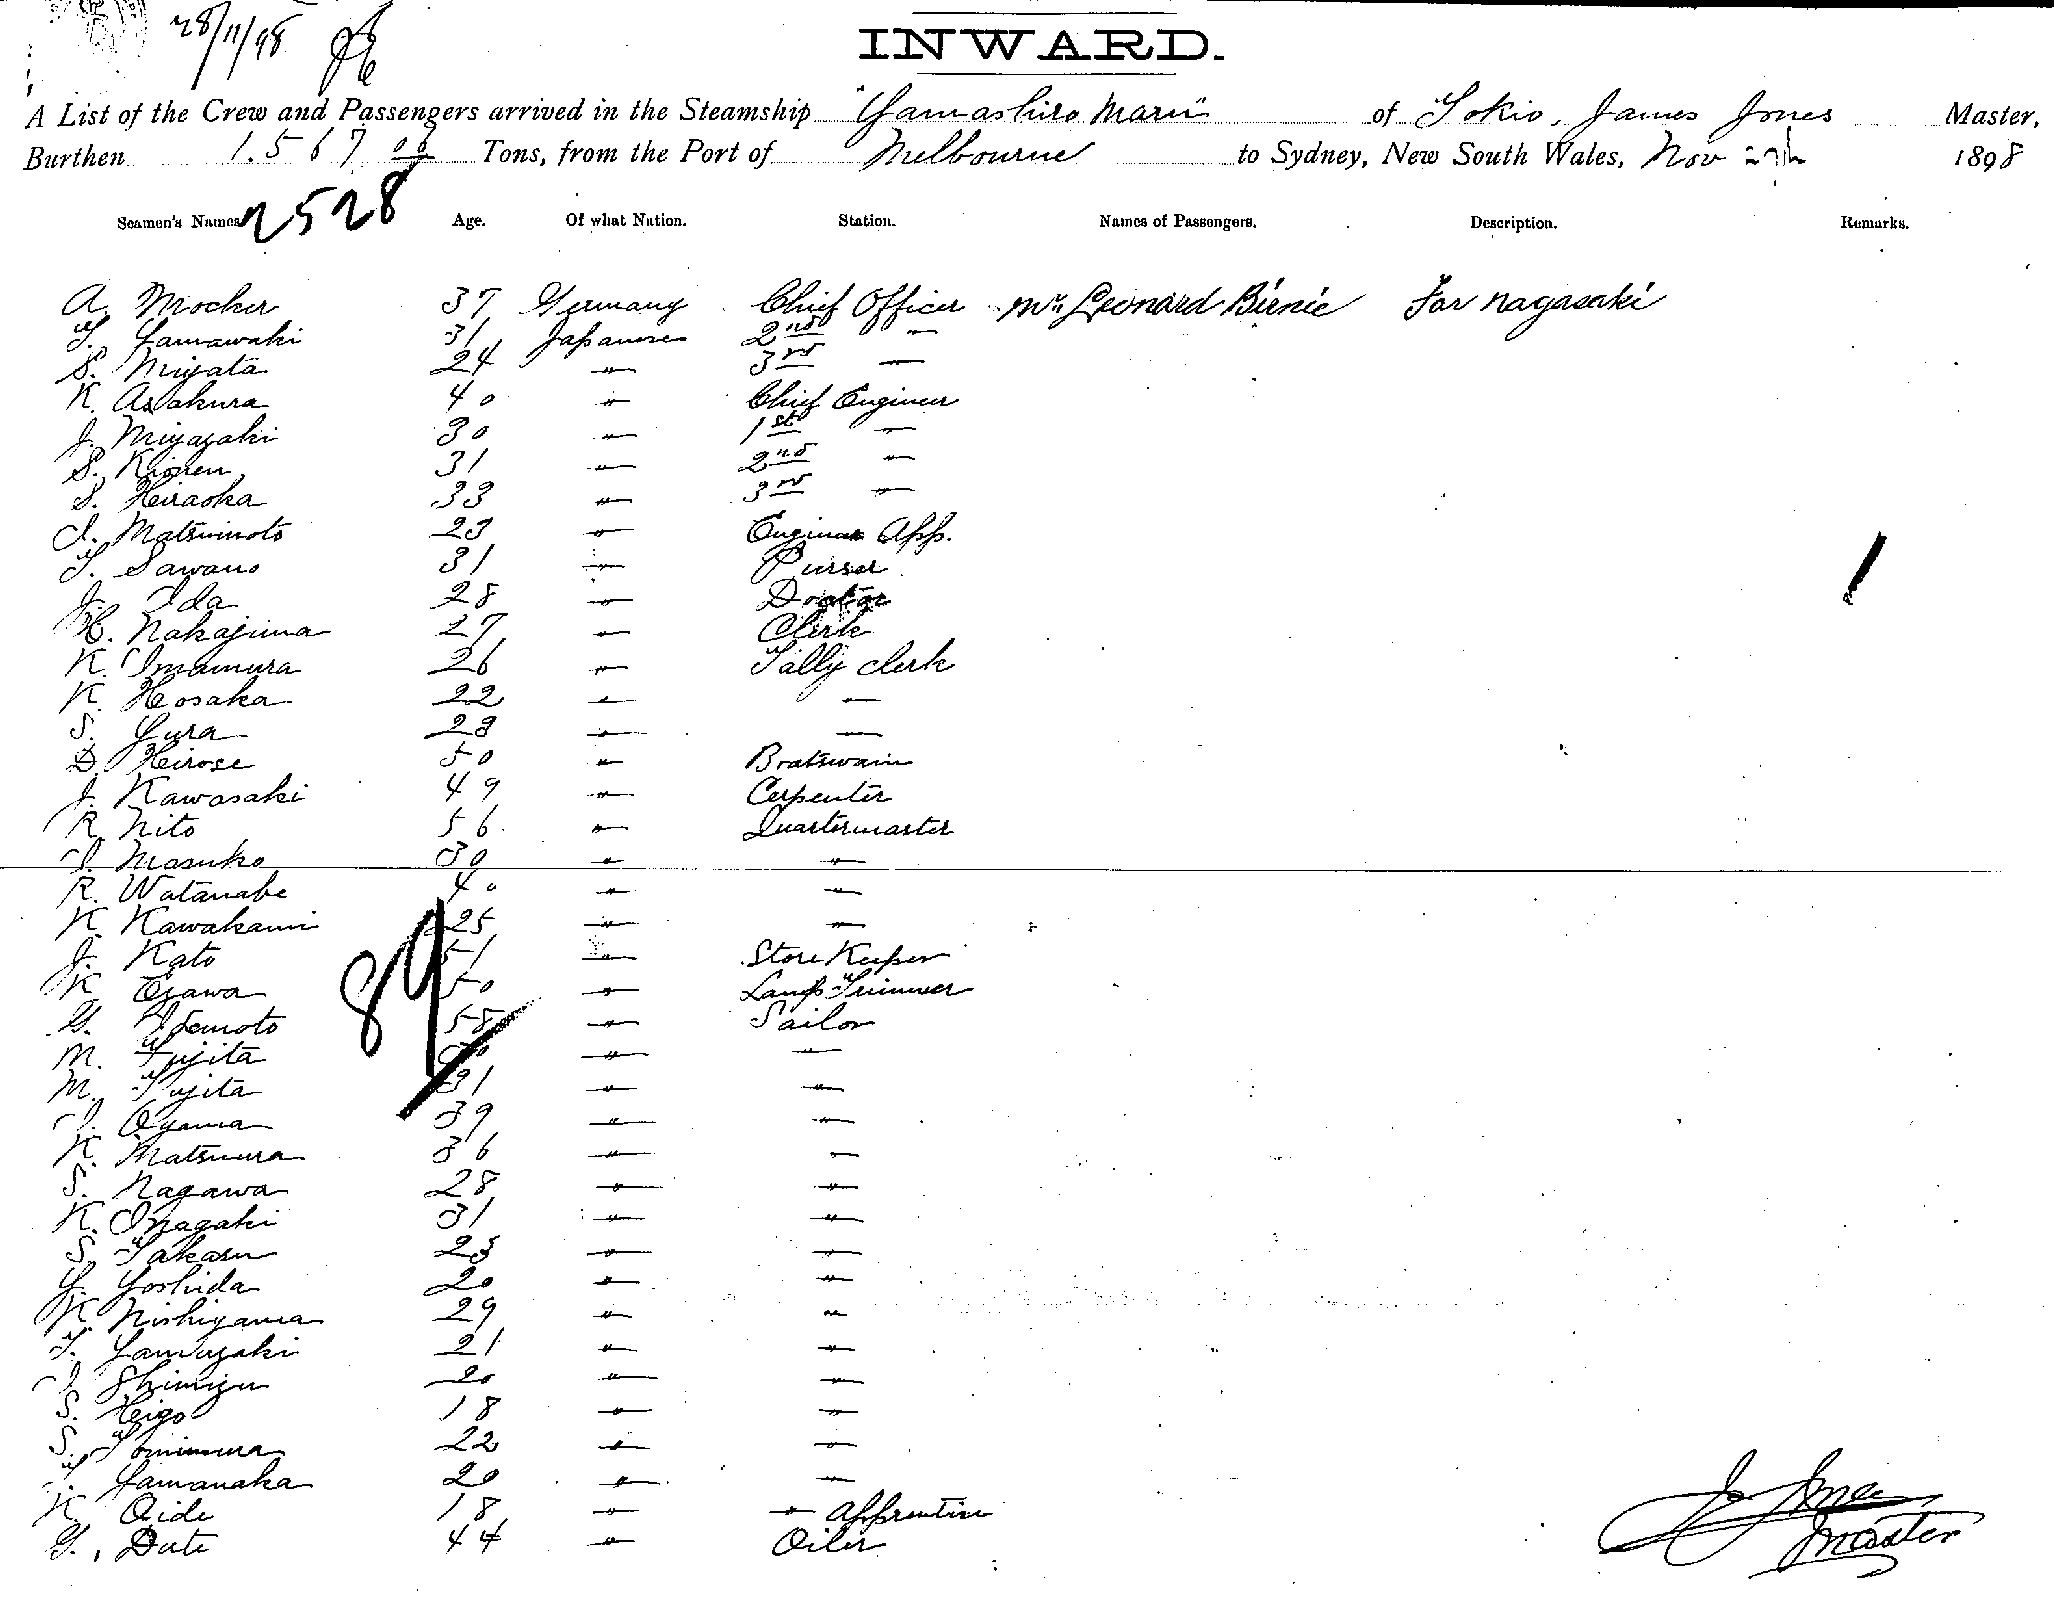 28/11/98
INWARD.
A List of the Crew and Passengers arrived in the Steamship "Yamashiro Maru" of Tokio, James Jones Master,
Burthen 1.567 06 Tons, from the Port of Melbourne to Sydney, New South Wales, Nov 27th 1898
2528
Seamen's Names Age. Of what Nation. Station. Names of Passengers. Description. Remarks.
A. Mocker 37 Germany Chief Officer Mr Leonard Birnie For Nagasaki
T. Yamawaki 31 Japanese 2nd "
S. Miyata 24 " 3rd "
K. Asakura 40 " Chief Engineer
J. Miyazaki 30 " 1st "
S. 31 " 2nd "
S. Hiraoka 33 " 3rd "
I. Matsumoto 23 " Engineer App.
T. Sawano 31 " Purser
J. Ida 28 " Doctor
H. Nakajima 27 " Clerk
K. Imamura 26 " Tally clerk
K. Hosaka 22 " "
S. Yura 23 " "
D. Hirose 50 " Boatswain
J. Kawasaki 49 " Cerpenter
R. Nito 56 " Quartermaster
I. Masuko 30 " "
R. Watanabe 40 " "
K. Kawakami 25 " "
J. Kato 51 " Store Keeper
K. Ozawa 50 " Lamp Trimmer
58 " Sailor
M. Fujita " "
M. Fujita 31 " "
I. Oyama 39 " "
K. Matsuura 36 " "
S. Nagawa 28 " "
K. Inagaki 31 " "
S. Takasu 23 " "
Y. Yoshida 20 " "
K. Nishiyama 29 " "
T. Yamazaki 21 " "
I. Shimizu 20 " "
S. Heigo 18 " "
S. Tomimura 22 " "
T. Yamanaka 20 " "
K. Oide 18 " " Apprentice
G. Date 44 " Oiler
89
J. Jones
Master